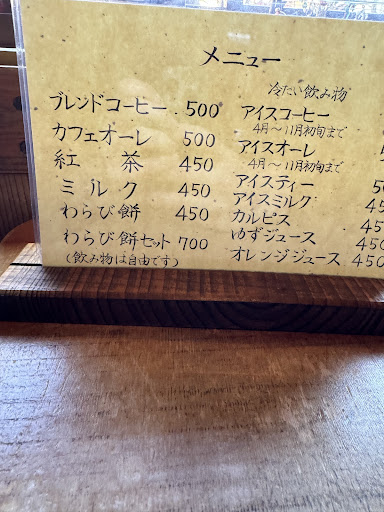 メニュー
ブレンドコーヒー 500
カフェオーレ 500
紅茶 450
ミルク 450
わらび餅 450
わらび餅セット 700
(飲み物は自由です)
冷たい飲み物
アイスコーヒー
4月〜11月初旬まで
アイスオーレ
4月〜11月初旬まで
アイスティー
アイスミルク
カルピス
ゆずジュース
オレンジジュース 450